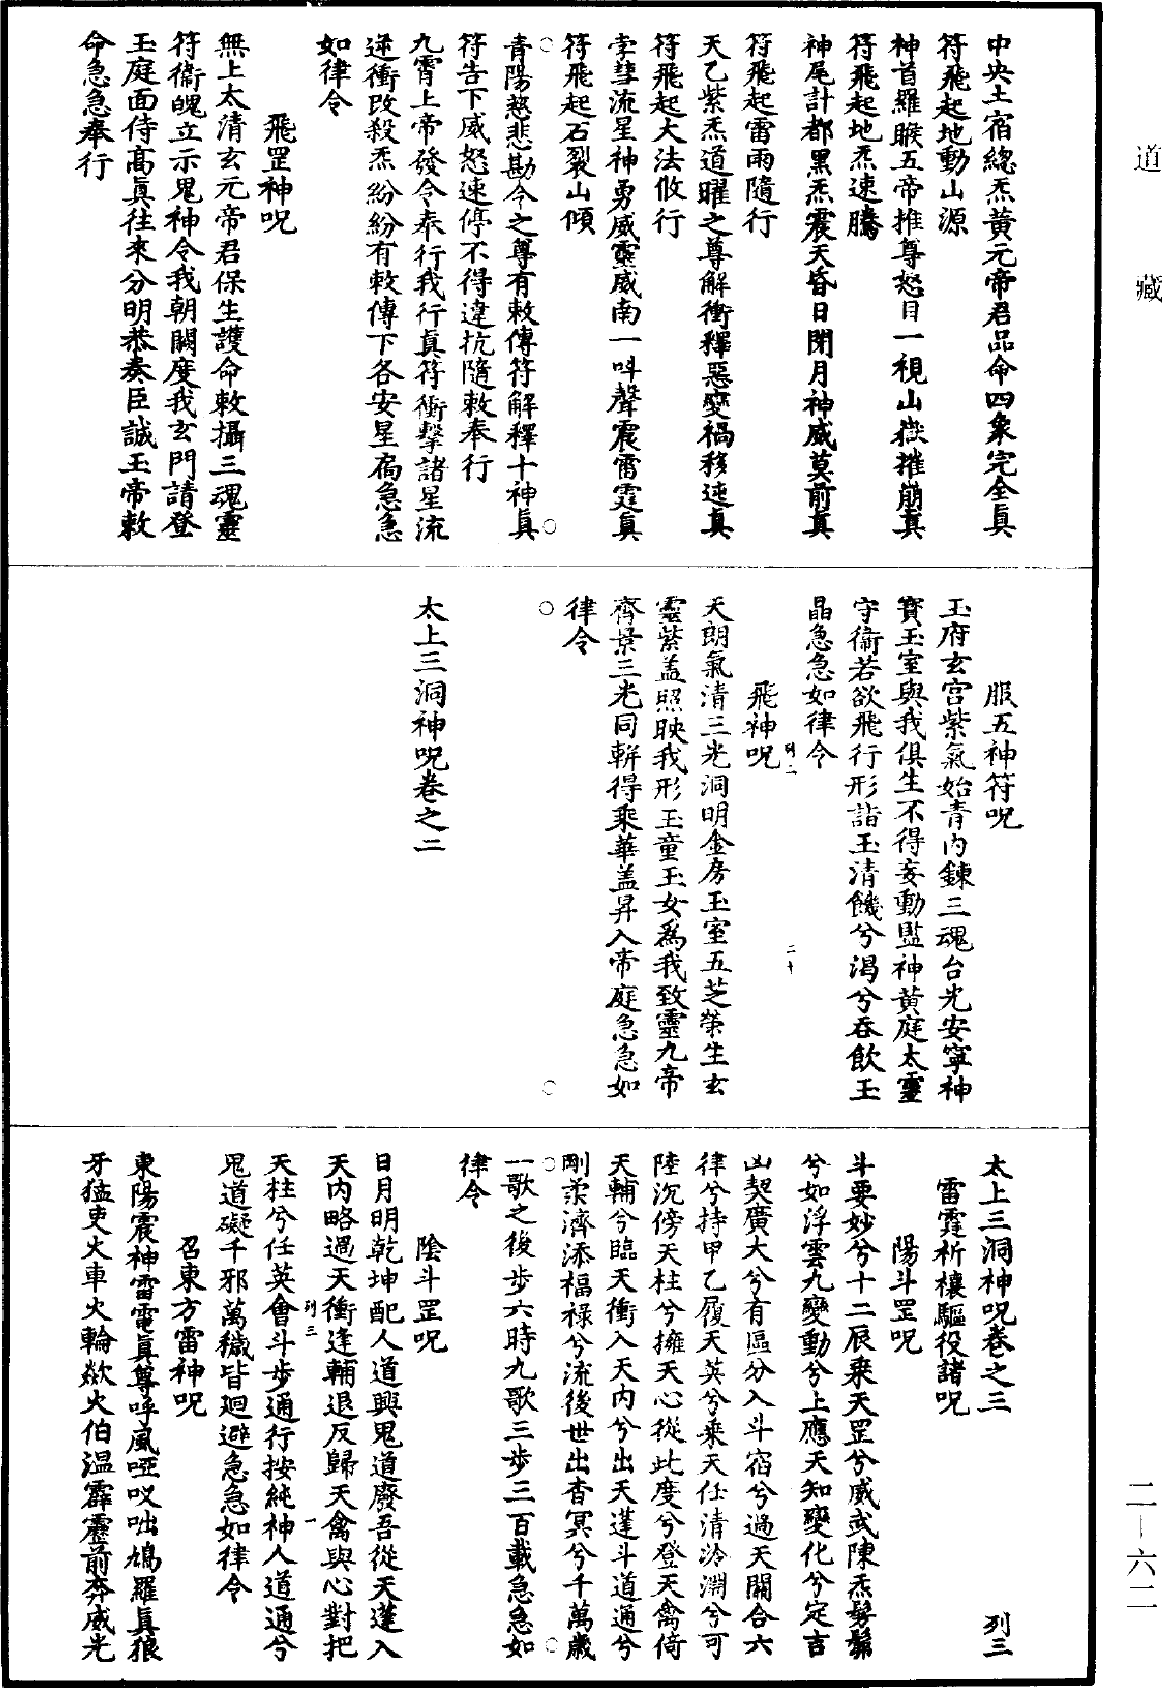 道藏
中央土宿總炁黃元帝君品命四象完全真
符飛起地動山源
神首羅睺五帝推尊怒目一視山嶽摧崩真
符飛起地炁速騰
神尾計都黑炁震天昏日閉月神威莫前真
符飛起雷雨隨行
天乙紫炁道曜之尊解衝釋惡變禍移迍真
符飛起大法攸行
孛彗流星神勇威靈威南一叫聲震雷霆真
符飛起石裂山傾
青陽慈悲勘令之尊有敕傳符解釋十神真
符告下威怒速停不得違抗隨敕奉行
九霄上帝發令奉行我行真符衝擊諸星流
逆衝改殺炁紛紛有敕傳下各安星扄急急
如律令
飛罡神呪
無上太清玄元帝君保生護命敕攝三魂靈
符衞魄立示鬼神令我朝闕度我玄門請登
玉庭面侍高真往來分明恭奏臣誠玉帝敕
命急急奉行
服五神符呪
玉府玄宮紫氣始青內鍊三魂台光安寧神
寳玉室與我俱生不得妄動監神黃庭太靈
守衞若欲飛行形詣玉清饑兮渴兮吞飲玉
晶急急如律令
飛神呪
列二
二十
天朗氣清三光洞明金房玉室五芝榮生玄
靈紫盖照映我形玉童玉女為我致靈九帝
齊景三光同軿得乘華盖昇入帝庭急急如
律令
太上三洞神呪卷之二
太上三洞神呪卷之三 列三
雷霆祈禳驅役諸呪
陽斗罡呪
斗要妙兮十二辰乘天罡兮威武陳炁髣髴
兮如浮雲九變動兮上應天知變化兮定吉
凶契廣大兮有區分入斗宿兮過天關合六
律兮持甲乙履天英兮乘天任清泠淵兮可
陸沉傍天柱兮擁天心從此度兮登天禽倚
天輔兮臨天衝入天內兮出天蓬斗道通兮
剛柔濟添福祿兮流後世出杳冥兮千萬歲
一歌之後步六時九歌三步三百載急急如
律令
陰斗罡呪
日月明乾坤配人道興鬼道廢吾從天蓬入
天內略過天衝逢輔退反歸天禽與心對把
列三
一
天柱兮任英會斗步通行按純神人道通兮
鬼道礙千邪萬穢皆迴避急急如律令
召東方雷神呪
東陽震神雷電真尊呼風啞㕤咄鳩羅真狼
牙猛吏火車火輪歘火伯溫霹靂前奔威光
二—六二